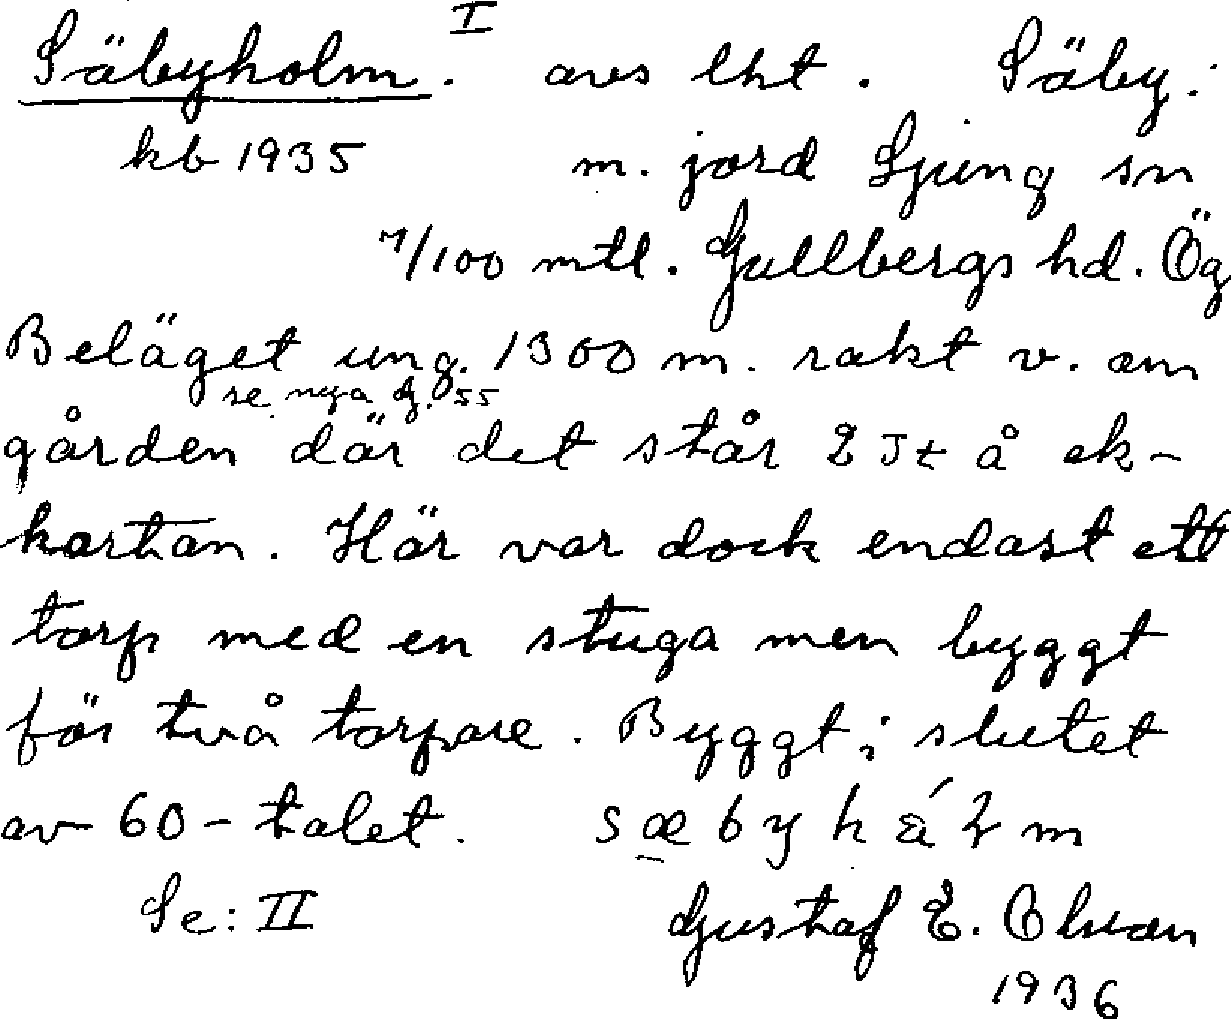 Säbyholm. I avs lht. Säby:
kb 1935 m. jord Ljung sn
7/100 mtl. Gullbergs hd. Ög
Beläget ung. 1300 m. rakt v. om
se nya g. 55
gården där det står 2 Jt å ek-
kartan. Här var dock endast ett
torp med en stuga men byggt
för två torpare. Byggt i slutet
av 60-talet.
Se: II Gustaf E. Olsson
1936